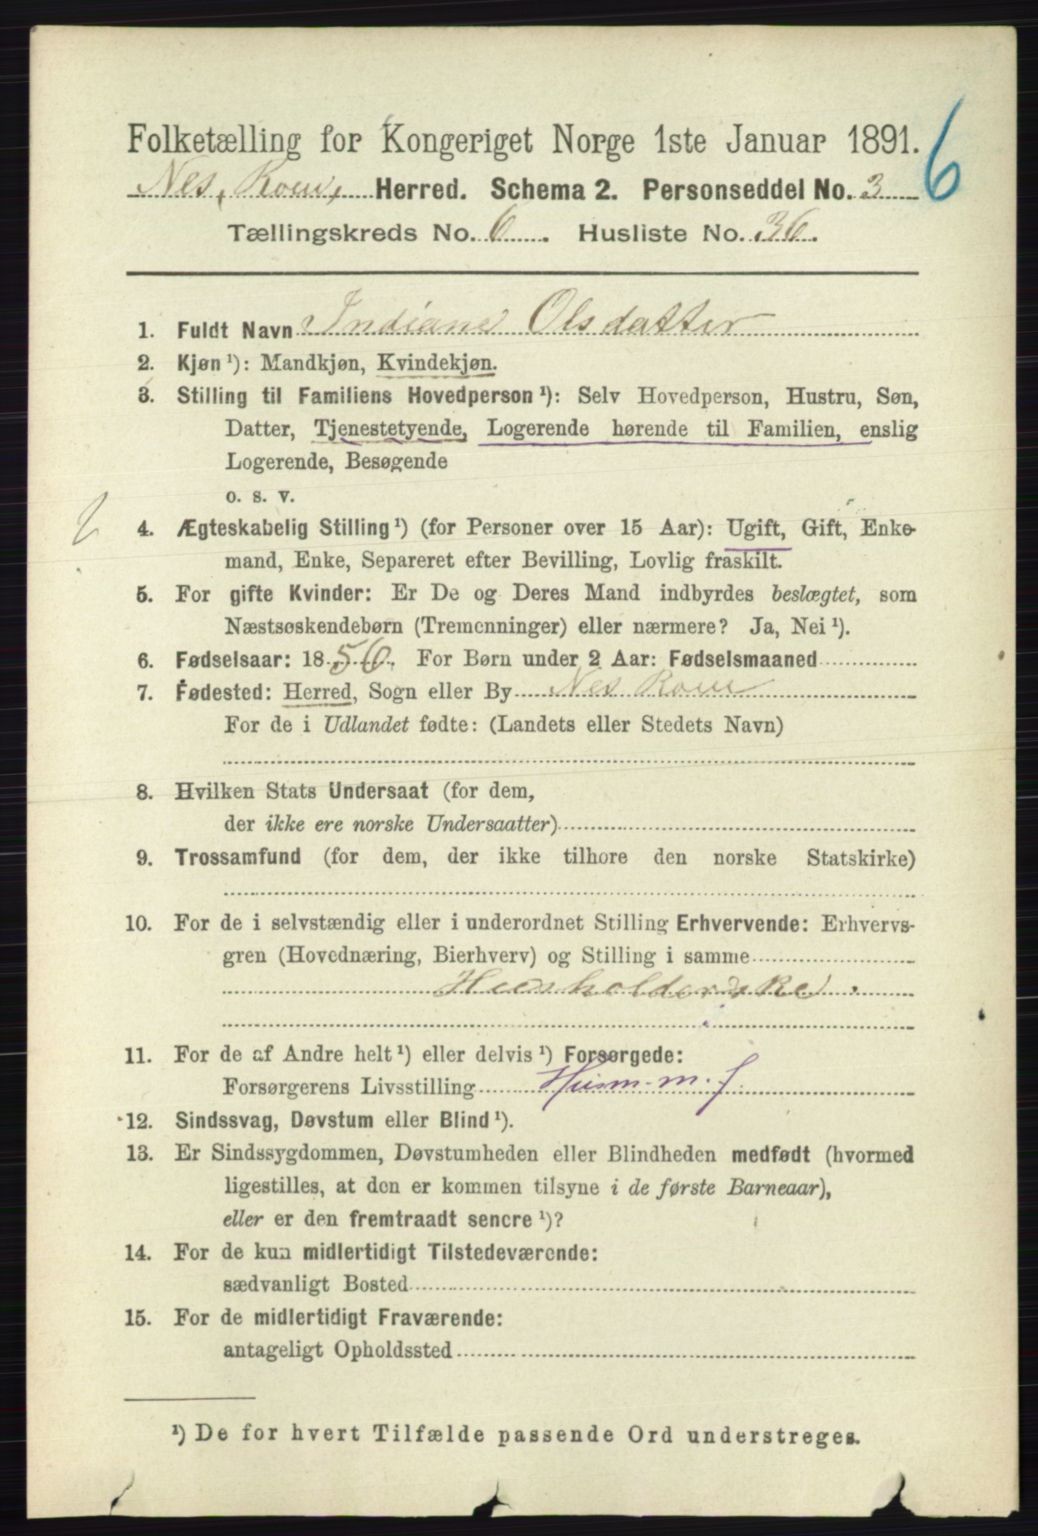 Folketælling for Kongeriget Norge 1ste Januar 1891.
6
Nes, Rom, Herred. Schema 2. Personseddel No. 3
Tællingskreds No. 6. Husliste No. 36.
1. Fuldt Navn Indiane Olsdatter
2. Kjøn ¹): Mandkjøn, Kvindekjøn.
3. Stilling til Familiens Hovedperson ¹): Selv Hovedperson, Hustru, Søn,
Datter, Tjenestetyende, Logerende hørende til Familien, enslig
Logerende, Besøgende
o. s. v.
4. Ægteskabelig Stilling ¹) (for Personer over 15 Aar): Ugift, Gift, Enke-
mand, Enke, Separeret efter Bevilling, Lovlig fraskilt.
5. For gifte Kvinder: Er De og Deres Mand indbyrdes beslægtet, som
Næstsøskendebørn (Tremenninger) eller nærmere? Ja, Nei ¹).
6. Fødselsaar: 1856. For Børn under 2 Aar: Fødselsmaaned
7. Fødested: Herred, Sogn eller By Nes Rom
For de i Udlandet fødte: (Landets eller Stedets Navn)
8. Hvilken Stats Undersaat (for dem,
der ikke ere norske Undersaatter)
9. Trossamfund (for dem, der ikke tilhore den norske Statskirke)
10. For de i selvstændig eller i underordnet Stilling Erhvervende: Erhvervs-
gren (Hovednæring, Bierhverv) og Stilling i samme
Husholderske.
11. For de af Andre helt ¹) eller delvis ¹) Forsørgede:
Forsørgerens Livsstilling Husm. m. J.
12. Sindssvag, Døvstum eller Blind ¹).
13. Er Sindssygdommen, Døvstumheden eller Blindheden medfødt (hvormed
ligestilles, at den er kommen tilsyne i de første Barneaar),
eller er den fremtraadt senere ¹)?
14. For de kun midlertidigt Tilstedeværende:
sædvanligt Bosted
15. For de midlertidigt Fraværende:
antageligt Opholdssted
¹) De for hvert Tilfælde passende Ord understreges.